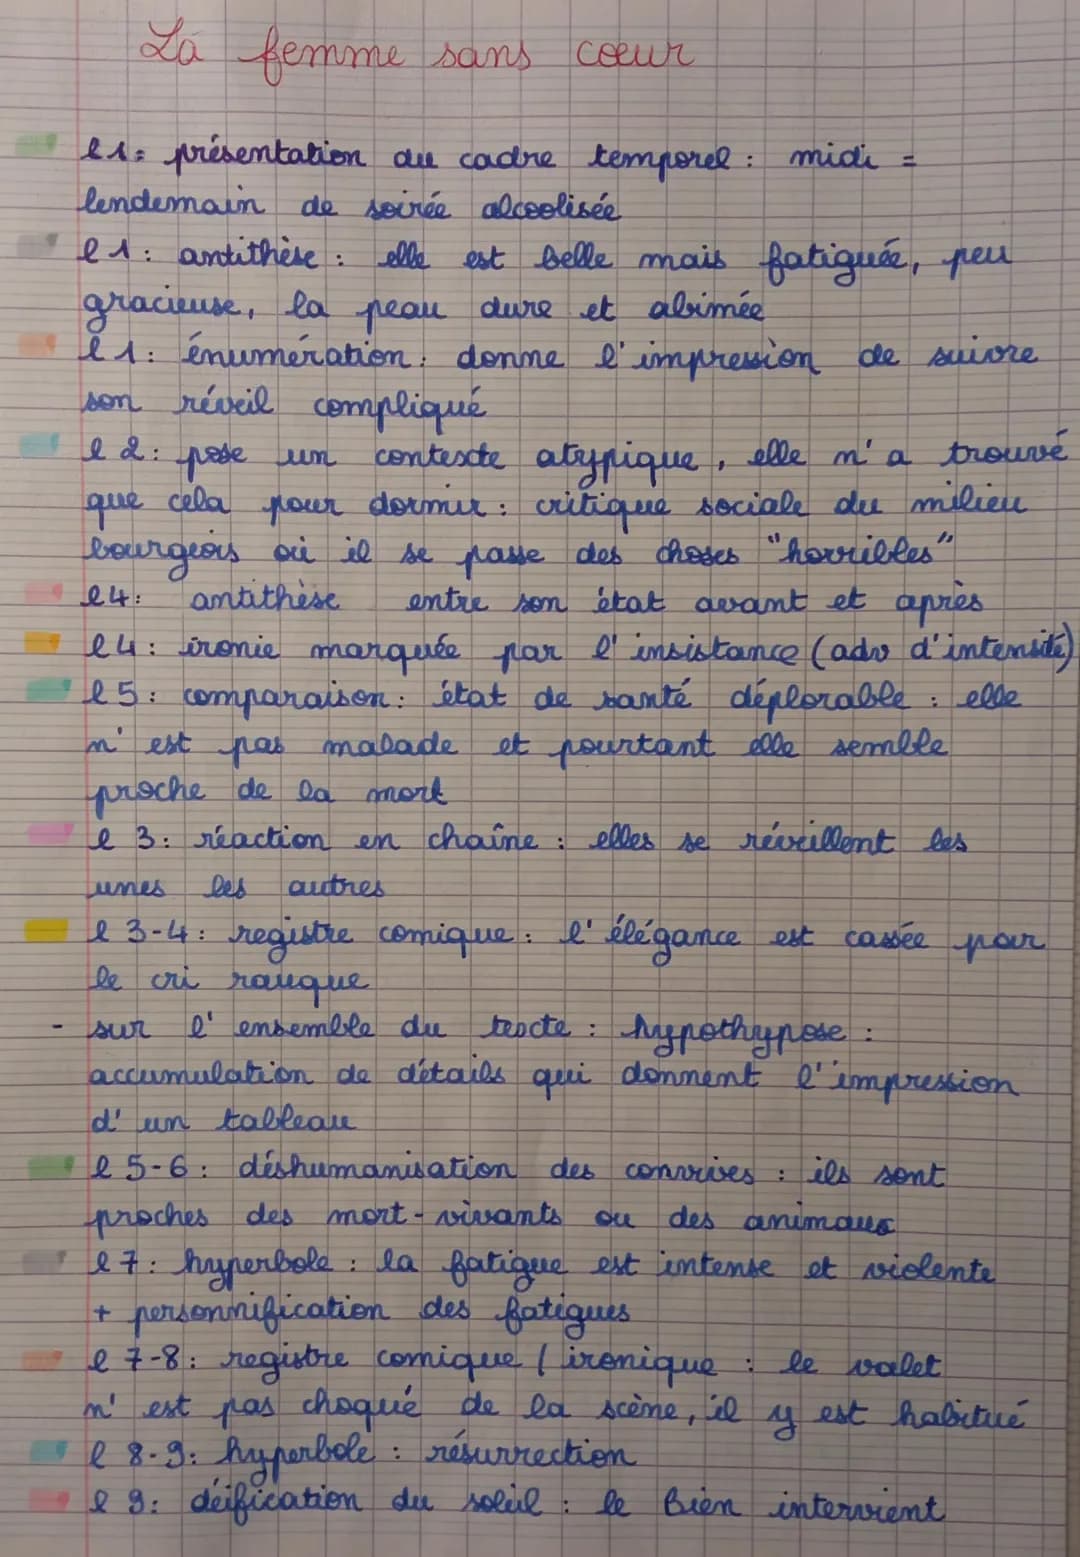 La femme sans coeur
l1: présentation du cadre temporel : midi =
lendemain de soirée alcoolisée
l1: antithèse : elle est belle mais fatiguée, peu
gracieuse, la peau dure et abimée
l1: énumération: donne l'impression de suivre
son réveil compliqué
l2: pose un contexte atypique, elle n'a trouvé
que cela pour dormir: critique sociale du milieu
bourgeois où il se passe des choses "horribles"
l4: antithèse entre son état avant et après
l4: ironie marquée par l'insistance (adv d'intensité)
l5: comparaison: état de santé déplorable : elle
n'est pas malade et pourtant elle semble
proche de la mort
l 3: réaction en chaîne : elles se réveillent les
unes les autres
l 3-4: registre comique: l'élégance est cassée par
le cri rauque
- sur l'ensemble du texte : hypothypose :
accumulation de détails qui donnent l'impression
d'un tableau
l 5-6: déshumanisation des convives : ils sont
proches des mort-vivants ou des animaux
l7: hyperbole : la fatigue est intense et violente
+ personnification des fatigues
l 7-8: registre comique / ironique : le valet
n'est pas choqué de la scène, il y est habitué
l 8-9: hyperbole : résurrection
l 9: déification du soleil : le Bien intervient